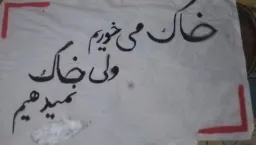 خاک می خوریم
ولی خاک
نمیدهیم